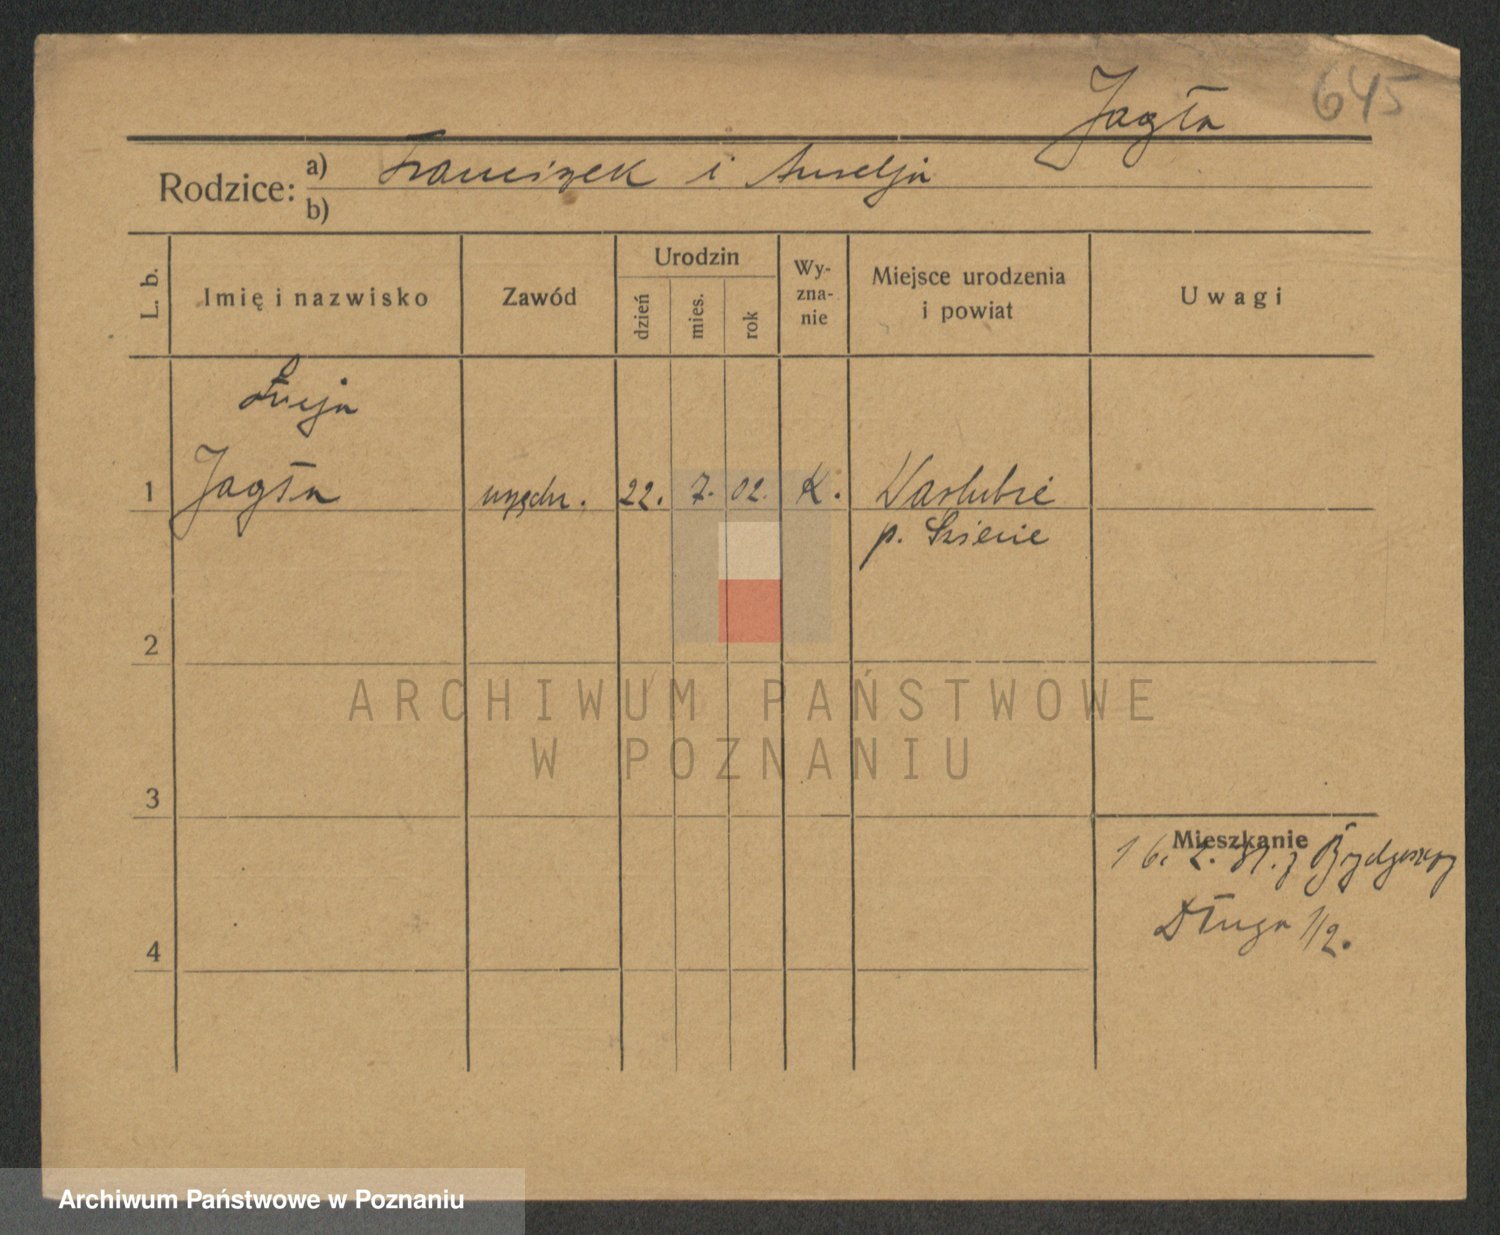 645
Jagła
Rodzice: a) Franciszek i Anielja
b)
L. b.
Imię i nazwisko
Zawód
Urodzin
dzień
mies.
rok
Wy-
zna-
nie
Miejsce urodzenia
i powiat
Uwagi
Łucja
1 Jagła urzędn. 22. 7. 02. K. Warlubie
p. Świecie
2
3
4
Mieszkanie
16. 2. 31. z Bydgoszczy
Długa 1/2.
ARCHIWUM PAŃSTWOWE
W POZNANIU
Archiwum Państwowe w Poznaniu